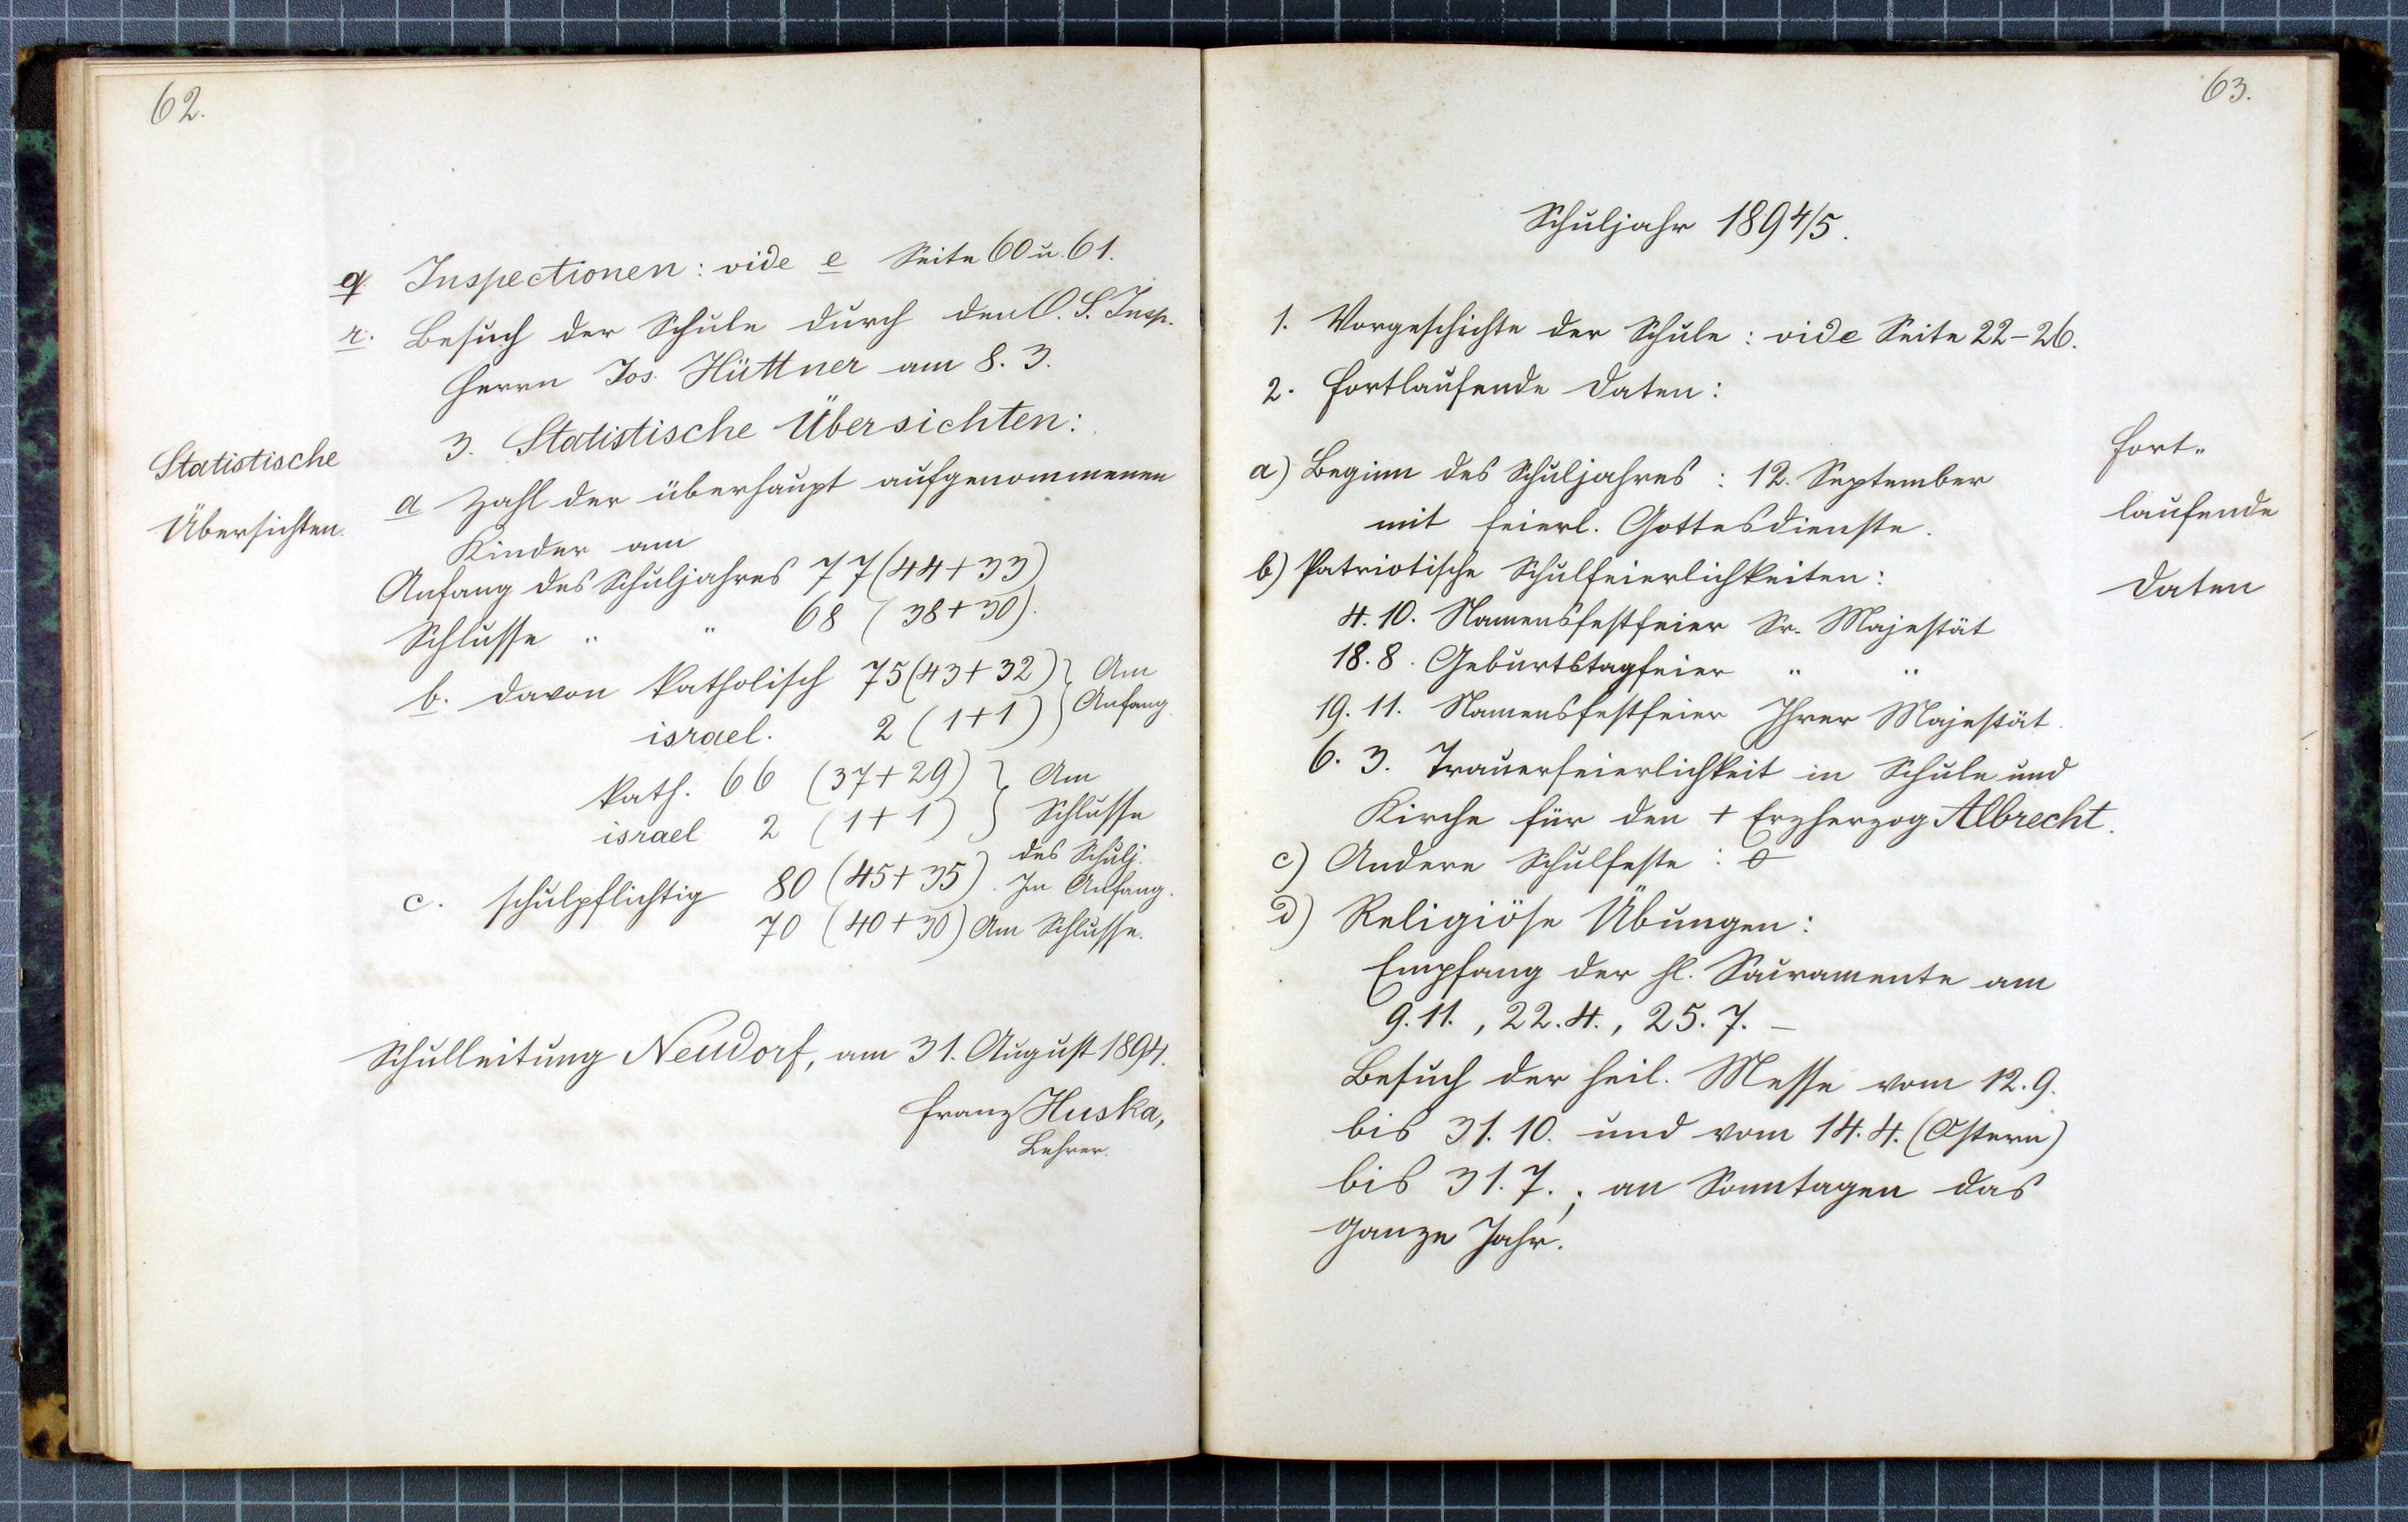 62.
q. Inspectionen: vide e Seite 60 u. 61.
r. Besuch der Schule durch den O. S. Insp.
Herrn Jos. Hüttner am 8. 3.
3. Statistische Übersichten:
Statistische
Übersichten.
a Zahl der überhaupt aufgenommenen
Kinder am
Anfang des Schuljahres 77 (44+33)
Schlusse " " 68 (38+30).
b. davon katholisch 75 (43+32) } Am
israel. 2 (1+1) } Anfang.
kath. 66 (37+29) } Am
israel 2 (1+1) } Schlusse
des Schulj.
c. schulpflichtig 80 (45+35). Im Anfang.
70 (40+30) Am Schlusse.
Schulleitung Neudorf, am 31. August 1894.
Franz Huska,
Lehrer.
63.
Schuljahr 1894/5.
1. Vorgeschichte der Schule: vide Seite 22-26.
2. Fortlaufende Daten:
Fort-
laufende
Daten
a) Beginn des Schuljahres: 12. September
mit feierl. Gottesdienste.
b) Patriotische Schulfeierlichkeiten:
4. 10. Namensfestfeier Sr. Majestät
18. 8. Geburtstagfeier " "
19. 11. Namensfestfeier Ihrer Majestät.
6. 3. Trauerfeierlichkeit in Schule und
Kirche für den + Erzherzog Albrecht.
c) Andere Schulfeste: 0
d) Religiöse Übungen:
Empfang der hl. Sacramente am
9. 11., 22. 4., 25. 7. –
Besuch der heil. Messe vom 12. 9.
bis 31. 10. und vom 14. 4. (Ostern)
bis 31. 7.; an Sonntagen das
ganze Jahr.